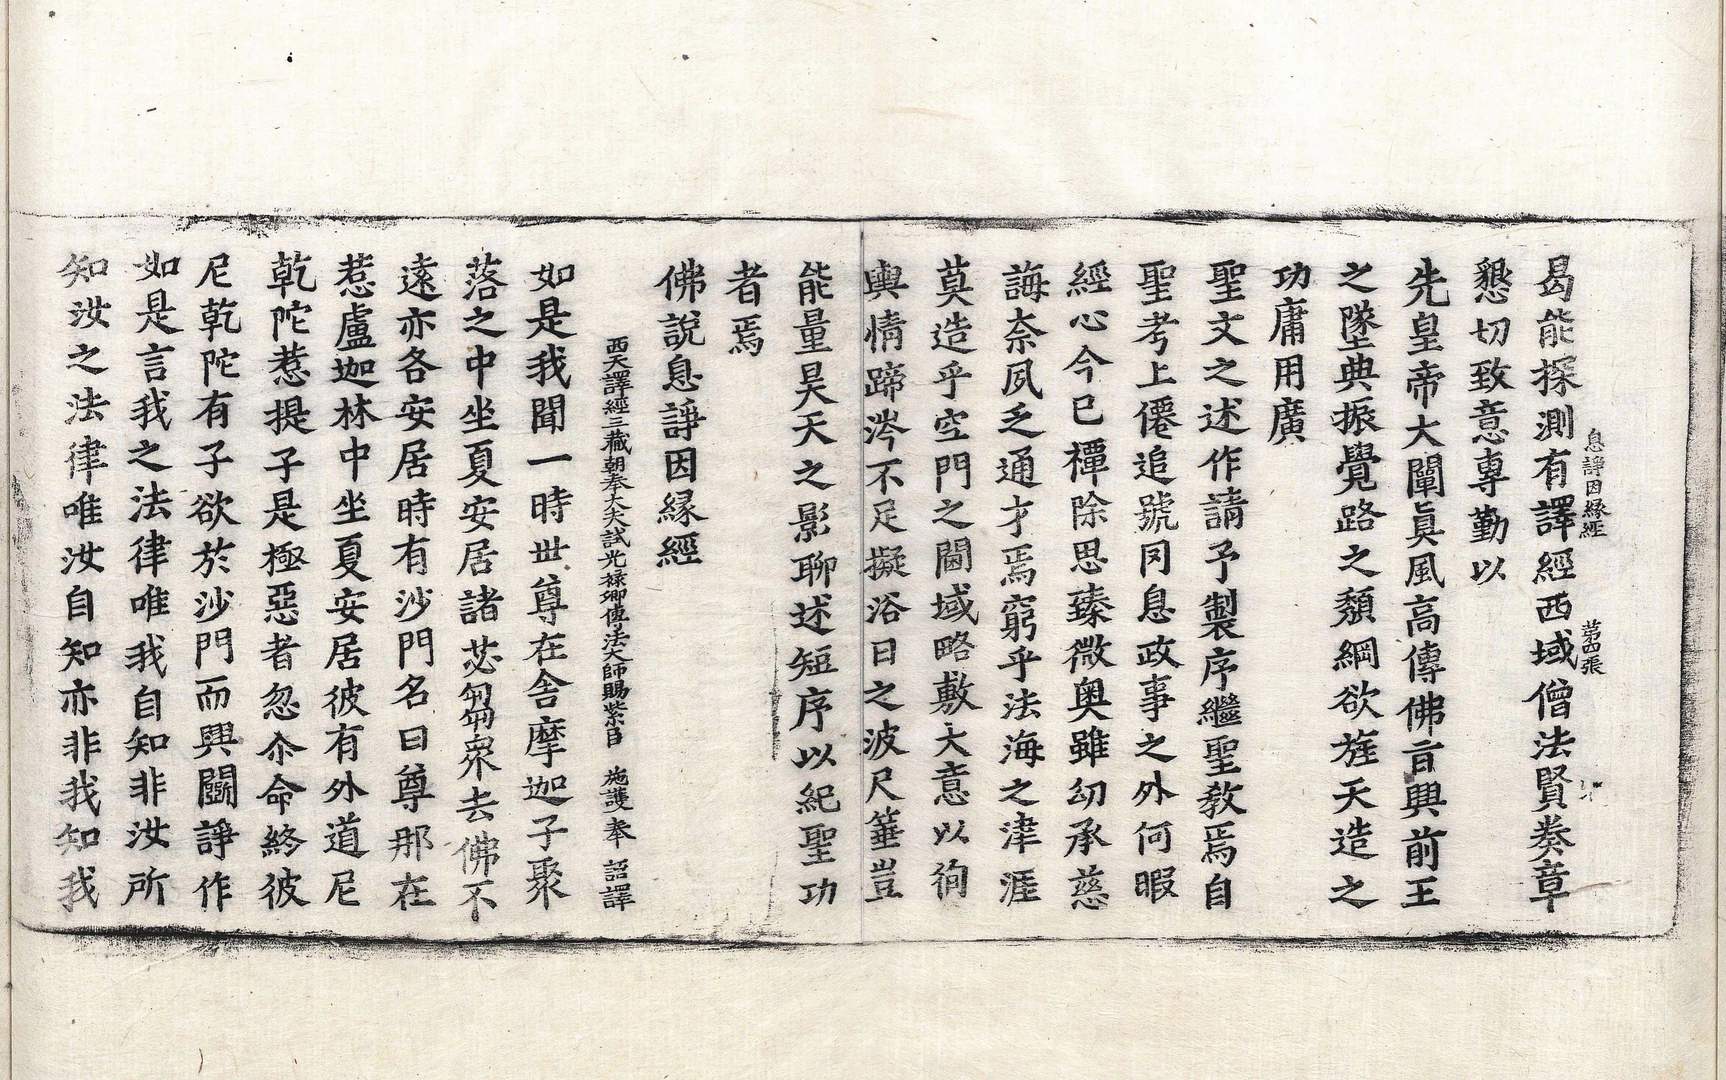 息諍因緣經 第四張
曷能探測有譯經西域僧法賢奏章
懇切致意專勤以
先皇帝大闡眞風高傳佛旨興前王
之墜典振覺路之頹綱欲旌天造之
功庸用廣
聖文之述作請予製序繼聖教焉自
聖考上僊追號罔息政事之外何暇
經心今已禫除思臻微奧雖幼承慈
誨柰夙乏通才焉窮乎法海之津涯
莫造乎空門之閫域略敷大意以徇
輿情蹄涔不足擬浴日之波尺箠豈
能量昊天之影聊述短序以紀聖功
者焉
佛說息諍因緣經
西天譯經三藏朝奉大夫試光祿卿傳法大師賜紫臣 施護奉 詔譯
如是我聞一時世尊在舍摩迦子聚
落之中坐夏安居諸苾芻衆去佛不
遠亦各安居時有沙門名曰尊那在
惹盧迦林中坐夏安居彼有外道尼
乾陀惹提子是極惡者忽尒命終彼
尼乾陀有子欲於沙門而興鬭諍作
如是言我之法律唯我自知非汝所
知汝之法律唯汝自知亦非我知我